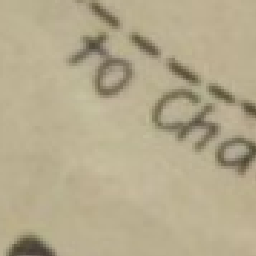 to Cha